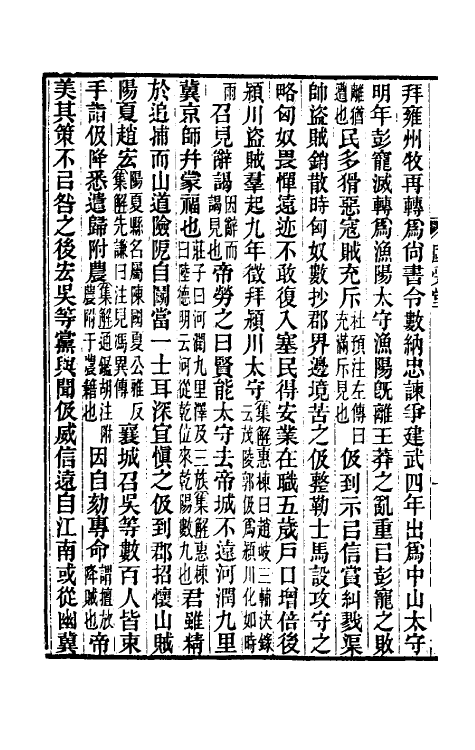 拜雍州牧再轉爲尚書令數納忠諫爭建武四年出爲中山太守
明年彭寵滅轉爲漁陽太守漁陽旣離王莽之亂重㠯彭寵之敗
離猶遭也民多猾惡寇賊充斥杜預注左傳曰充滿斥見也伋到示㠯信賞糾戮渠
師盜賊銷散時匈奴數抄郡界邊境苦之伋整勒士馬設攻守之
略匈奴畏憚遠迹不敢復入塞民得安業在職五歲戶口增倍後
潁川盜賊羣起九年徵拜潁川太守集解惠棟曰趙岐三輔決錄云茂陵郭伋爲潁川化如時
雨召見辭謁因辭而謁見也帝勞之曰賢能太守去帝城不遠河潤九里
冀京師幷蒙福也莊子曰河潤九里澤及三族集解惠棟曰陸德明云河從乾位來乾陽數九也君雖精
於追捕而山道險阸自鬭當一士耳深宜愼之伋到郡招懷山賊
陽夏趙宏陽夏縣名屬陳國夏公雅反集解先謙曰注見馮異傳襄城召吳等數百人皆束
手詣伋降悉遣歸附農集解通鑑胡注附農附于農籍也因自劾專命謂擅放降賊也帝
美其策不㠯咎之後宏吳等黨與聞伋威信遠自江南或從幽冀